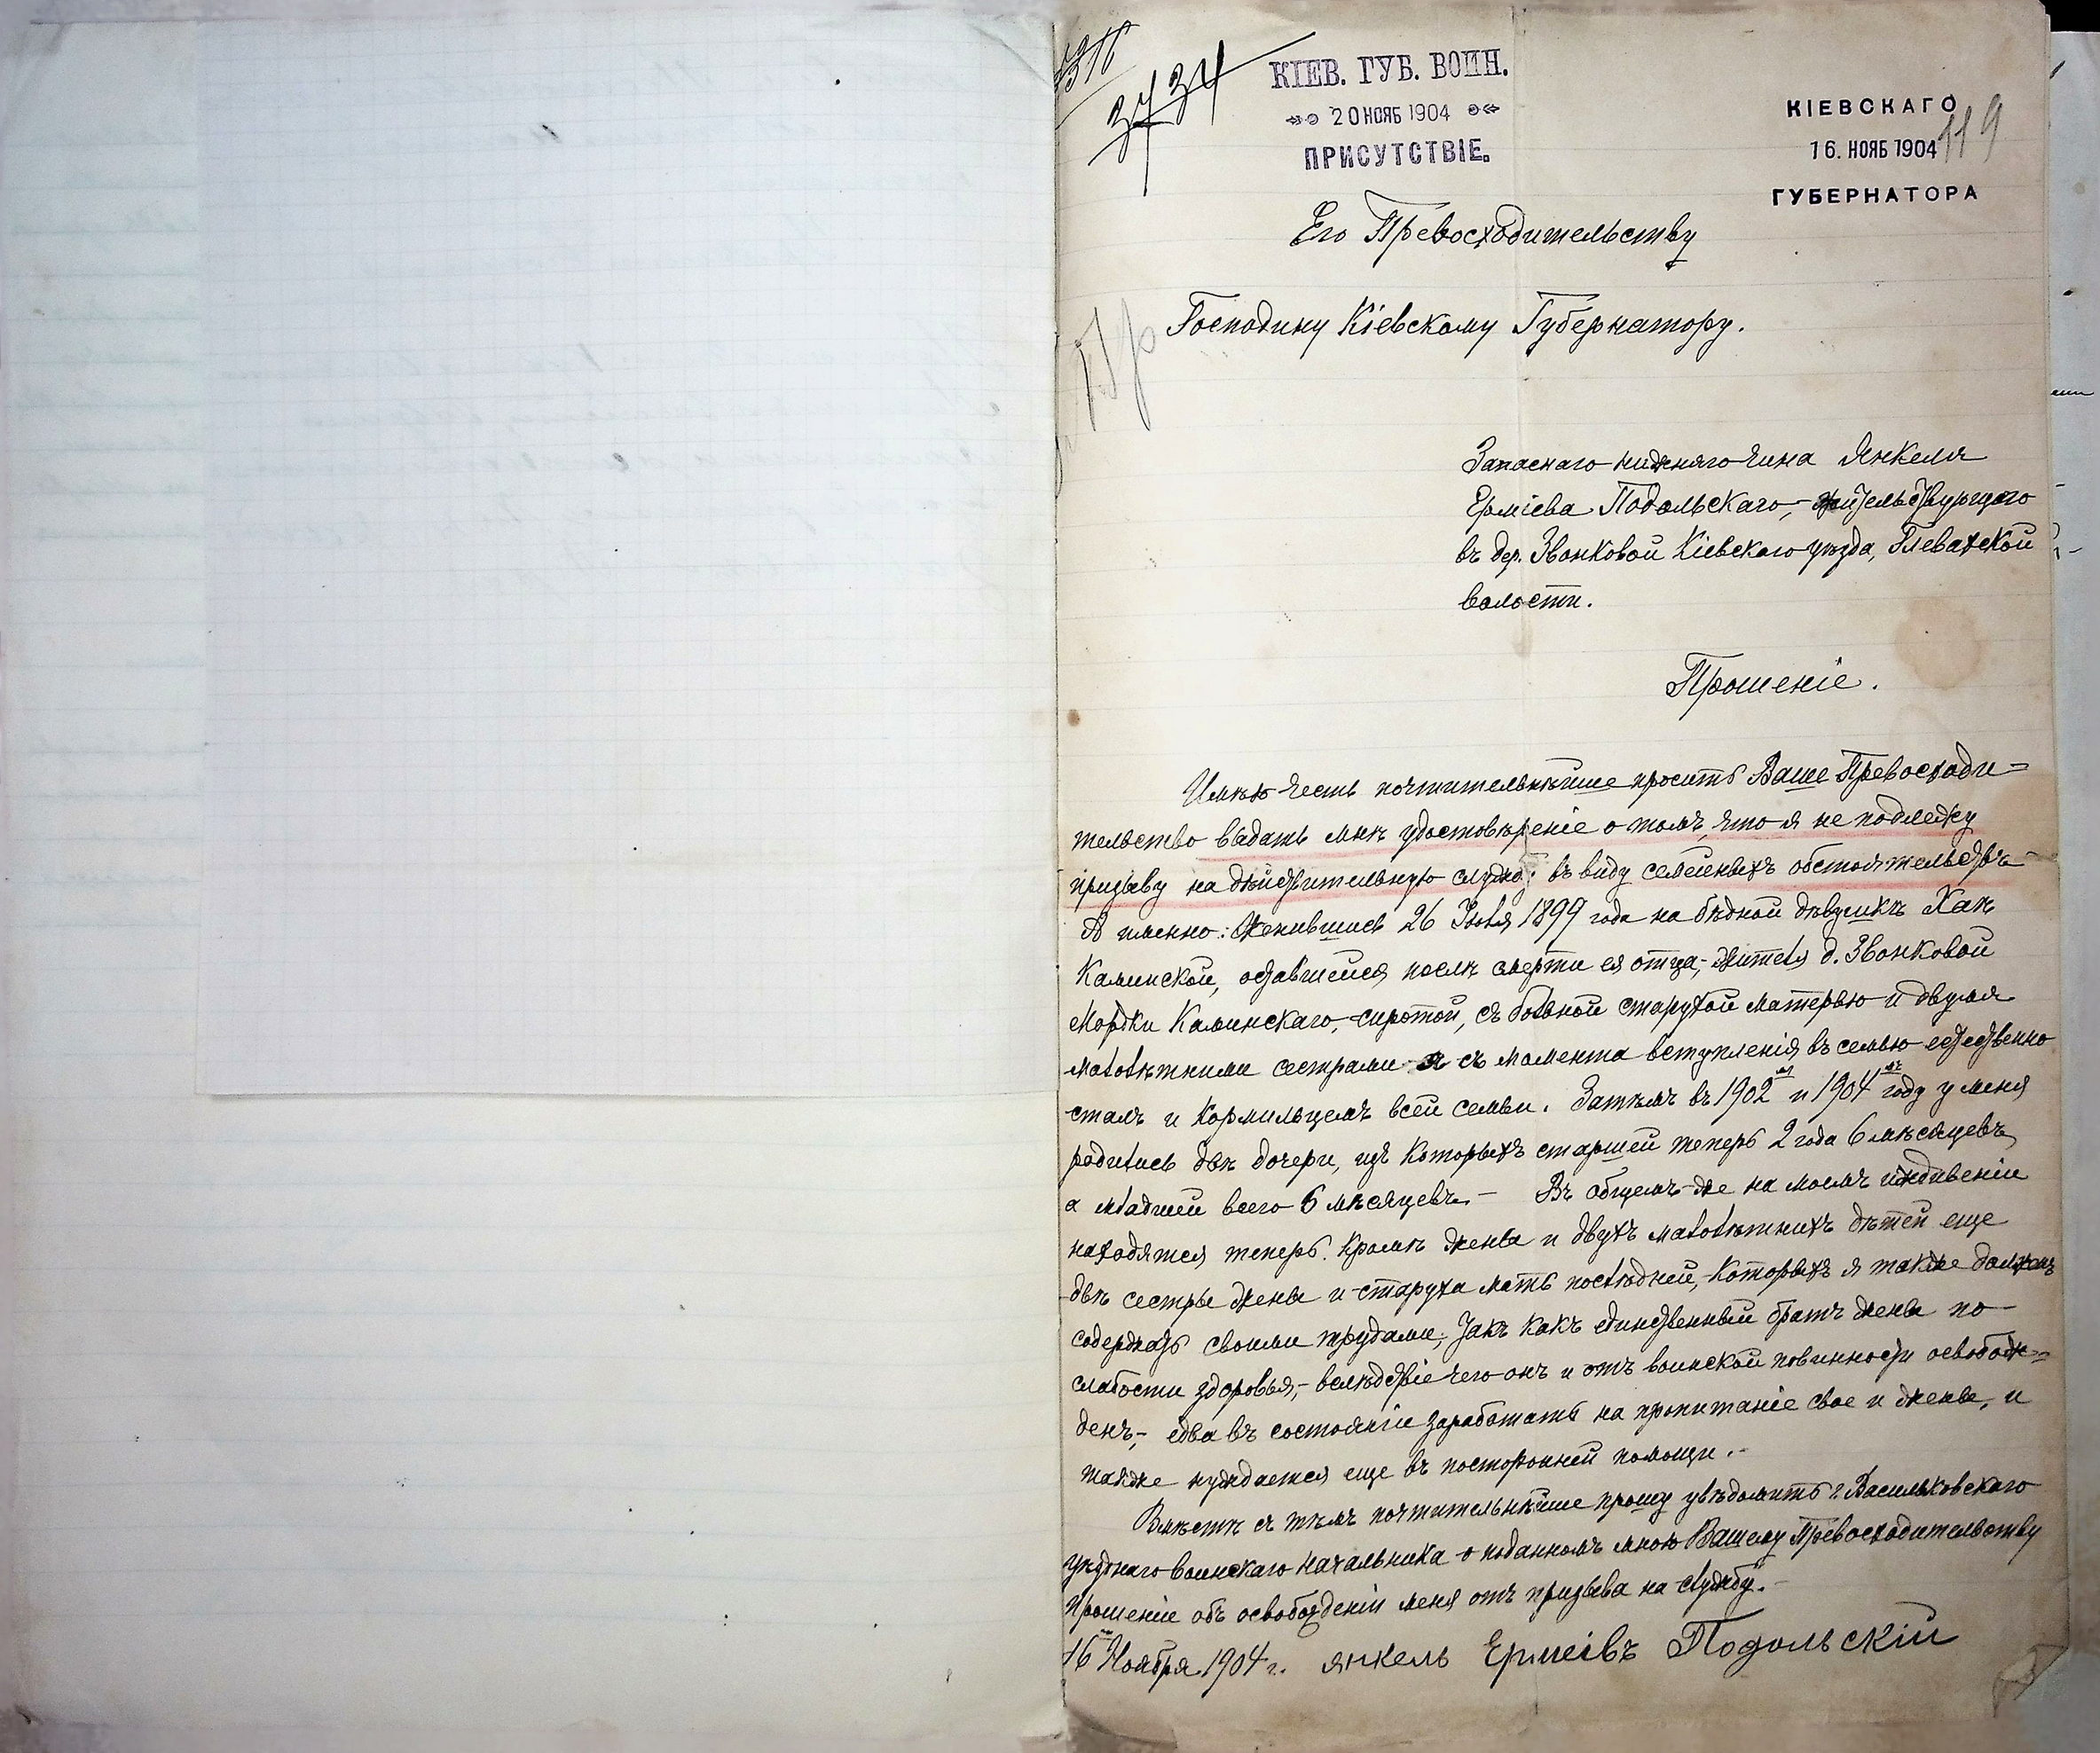 3734
КІЕВ. ГУБ. ВОИН.
20 НОЯБ 1904
ПРИСУТСТВІЕ.
КІЕВСКАГО
16. НОЯБ 1904
ГУБЕРНАТОРА
119
Его Превосходительству
Господину Кіевскому Губернатору.
Запаснаго нижняго чина Янкеля
Ерміева Подольскаго, жительствующаго
въ дер. Звонковой Кіевскаго уѣзда, Глевахской
волости.
Прошеніе.
Имѣю честь почтительнѣйше просить Ваше Превосходи=
тельство выдать мнѣ удостовѣреніе о томъ, что я не подлежу
призыву на дѣйствительную службу въ виду семейныхъ обстоятельствъ
А именно: Женившись 26 Іюля 1899 года на бѣдной дѣвушкѣ Ханѣ
Каминской, оставшейся послѣ смерти ея отца, жителя д. Звонковой
Мордки Каминскаго, сиротой, съ больной старухой матерью и двумя
малолѣтними сестрами я съ момента вступленія въ семью естественно
сталъ и кормильцемъ всей семьи. Затѣмъ въ 1902 и 1904 году у меня
родились двѣ дочери, изъ которыхъ старшей теперь 2 года 6 мѣсяцевъ,
а младшей всего 6 мѣсяцевъ. – Въ общемъ-же на моемъ иждивеніи
находятся теперь кромѣ жены и двухъ малолѣтнихъ дѣтей еще
двѣ сестры жены и старуха мать послѣдней, которыхъ я также долженъ
содержать своими трудами, такъ какъ единственный братъ жены по
слабости здоровья, – вслѣдствіе чего онъ и отъ воинской повинности освобож=
денъ, – едва въ состояніи заработать на пропитаніе свое и жены, и
также нуждается еще въ посторонней помощи. –
Вмѣстѣ съ тѣмъ почтительнѣйше прошу увѣдомить г. Васильковскаго
уѣзднаго воинскаго начальника о поданномъ мною Вашему Превосходительству
прошеніи объ освобожденіи меня отъ призыва на службу. –
16 Ноября 1904 г. Янкель Ермеівъ Подольскій